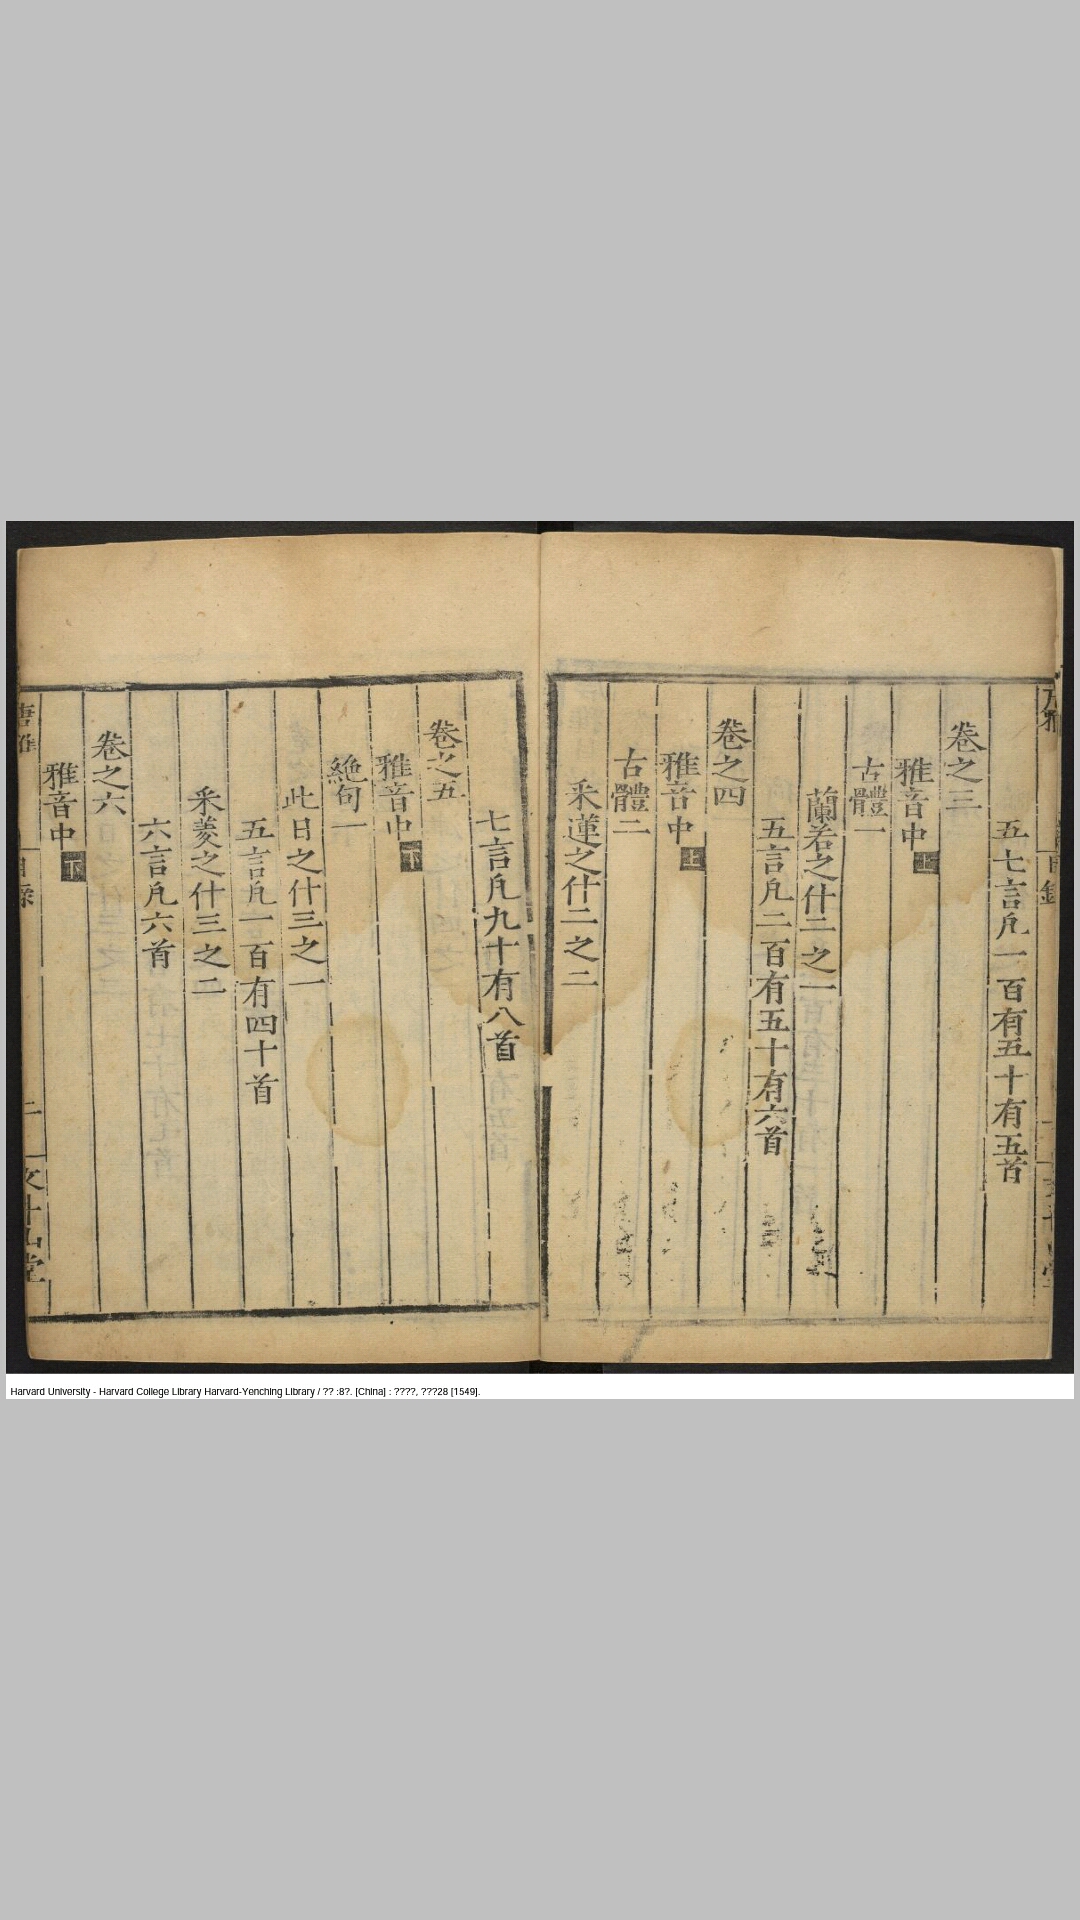 五七言凡一百有五十有五首
卷之三
雅音中上
古體一
蘭若之什二之一
五言凡二百有五十有六首
卷之四
雅音中上
古體二
采蓮之什二之二
七言凡九十有八首
卷之五
雅音中下
絶句一
此日之什三之一
五言凡一百有四十首
采菱之什三之二
六言凡六首
卷之六
雅音中下
Harvard University - Harvard College Library Harvard-Yenching Library / ?? :8?. [China] : ????, ???28 [1549].